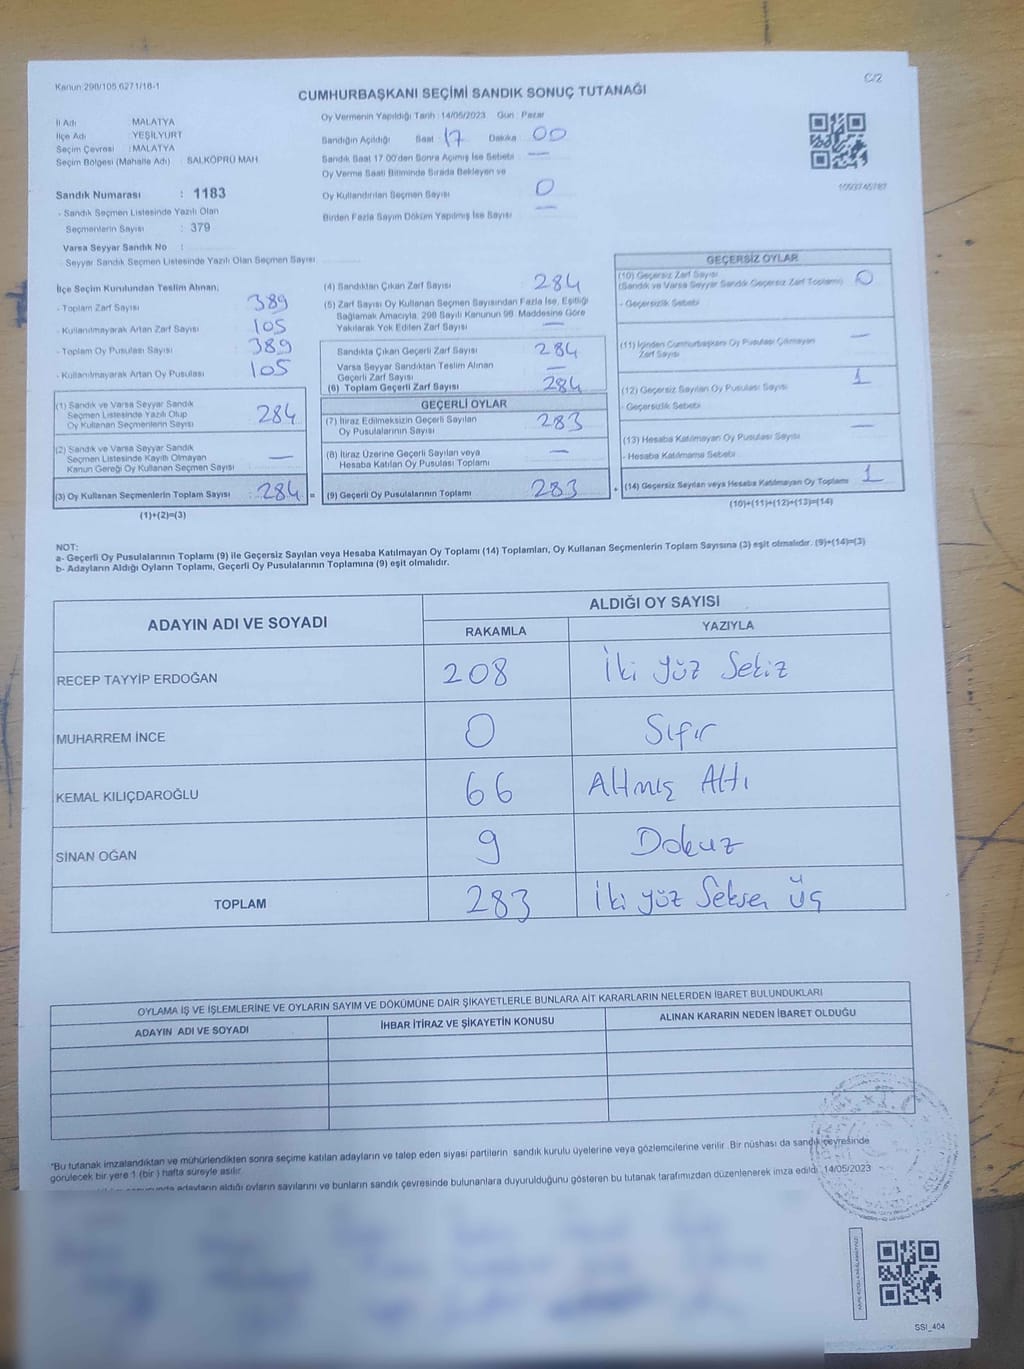 Kanun:298/105 6271/18-1
C/2
CUMHURBAŞKANI SEÇİMİ SANDIK SONUÇ TUTANAĞI
İl Adı : MALATYA
İlçe Adı : YEŞİLYURT
Seçim Çevresi : MALATYA
Seçim Bölgesi (Mahalle Adı) SALKÖPRÜ MAH
Sandık Numarası : 1183
- Sandık Seçmen Listesinde Yazılı Olan
Seçmenlerin Sayısı : 379
Varsa Seyyar Sandık No :
- Seyyar Sandık Seçmen Listesinde Yazılı Olan Seçmen Sayısı
Oy Vermenin Yapıldığı Tarih :14/05/2023 Gün : Pazar
Sandığın Açıldığı Saat 17 Dakika 00
Sandık Saat 17 00'den Sonra Açılmış İse Sebebi —
Oy Verme Saati Bitiminde Sırada Bekleyen ve
Oy Kullandırılan Seçmen Sayısı 0
Birden Fazla Sayım Döküm Yapılmış İse Sayısı —
1093745787
İlçe Seçim Kurulundan Teslim Alınan;
- Toplam Zarf Sayısı 389
- Kullanılmayarak Artan Zarf Sayısı 105
- Toplam Oy Pusulası Sayısı 389
- Kullanılmayarak Artan Oy Pusulası 105
(1) Sandık ve Varsa Seyyar Sandık
Seçmen Listesinde Yazılı Olup
Oy Kullanan Seçmenlerin Sayısı 284
(2) Sandık ve Varsa Seyyar Sandık
Seçmen Listesinde Kayıtlı Olmayan
Kanun Gereği Oy Kullanan Seçmen Sayısı —
(3) Oy Kullanan Seçmenlerin Toplam Sayısı : 284 =
(1)+(2)=(3)
(4) Sandıktan Çıkan Zarf Sayısı 284
(5) Zarf Sayısı Oy Kullanan Seçmen Sayısından Fazla İse, Eşitliği
Sağlamak Amacıyla, 298 Sayılı Kanunun 98. Maddesine Göre
Yakılarak Yok Edilen Zarf Sayısı —
Sandıkta Çıkan Geçerli Zarf Sayısı 284
Varsa Seyyar Sandıktan Teslim Alınan
Geçerli Zarf Sayısı —
(6) Toplam Geçerli Zarf Sayısı 284
GEÇERLİ OYLAR
(7) İtiraz Edilmeksizin Geçerli Sayılan
Oy Pusulalarının Sayısı 283
(8) İtiraz Üzerine Geçerli Sayılan veya
Hesaba Katılan Oy Pusulası Toplamı —
(9) Geçerli Oy Pusulalarının Toplamı 283 +
GEÇERSİZ OYLAR
(10) Geçersiz Zarf Sayısı
(Sandık ve Varsa Seyyar Sandık Geçersiz Zarf Toplamı) 0
- Geçersizlik Sebebi
(11) İçinden Cumhurbaşkanı Oy Pusulası Çıkmayan
Zarf Sayısı —
(12) Geçersiz Sayılan Oy Pusulası Sayısı 1
- Geçersizlik Sebebi
(13) Hesaba Katılmayan Oy Pusulası Sayısı —
- Hesaba Katılmama Sebebi
(14) Geçersiz Sayılan veya Hesaba Katılmayan Oy Toplamı 1
(10)+(11)+(12)+(13)=(14)
NOT:
a- Geçerli Oy Pusulalarının Toplamı (9) ile Geçersiz Sayılan veya Hesaba Katılmayan Oy Toplamı (14) Toplamları, Oy Kullanan Seçmenlerin Toplam Sayısına (3) eşit olmalıdır. (9)+(14)=(3)
b- Adayların Aldığı Oyların Toplamı, Geçerli Oy Pusulalarının Toplamına (9) eşit olmalıdır.
ADAYIN ADI VE SOYADI
ALDIĞI OY SAYISI
RAKAMLA YAZIYLA
RECEP TAYYİP ERDOĞAN 208 İki yüz Sekiz
MUHARREM İNCE 0 Sıfır
KEMAL KILIÇDAROĞLU 66 Altmış Altı
SİNAN OĞAN 9 Dokuz
TOPLAM 283 İki yüz Seksen Üç
OYLAMA İŞ VE İŞLEMLERİNE VE OYLARIN SAYIM VE DÖKÜMÜNE DAİR ŞİKAYETLERLE BUNLARA AİT KARARLARIN NELERDEN İBARET BULUNDUKLARI
ADAYIN ADI VE SOYADI İHBAR İTİRAZ VE ŞİKAYETİN KONUSU ALINAN KARARIN NEDEN İBARET OLDUĞU
*Bu tutanak imzalandıktan ve mühürlendikten sonra seçime katılan adayların ve talep eden siyasi partilerin sandık kurulu üyelerine veya gözlemcilerine verilir. Bir nüshası da sandık çevresinde
görülecek bir yere 1 (bir) hafta süreyle asılır.
adayların aldığı oyların sayılarını ve bunların sandık çevresinde bulunanlara duyurulduğunu gösteren bu tutanak tarafımızdan düzenlenerek imza edildi. 14/05/2023
SSI_404